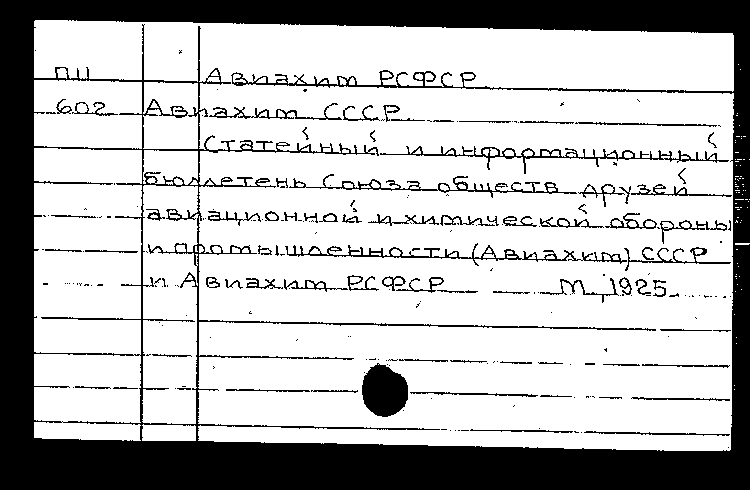 П11 Авиахим РСФСР
602 Авиахим СССР.
Статейный и информационный
бюллетень Союза обществ друзей
авиационной и химической обороны
и промышленности (Авиахим) СССР
и Авиахим РСФСР М., 1925.